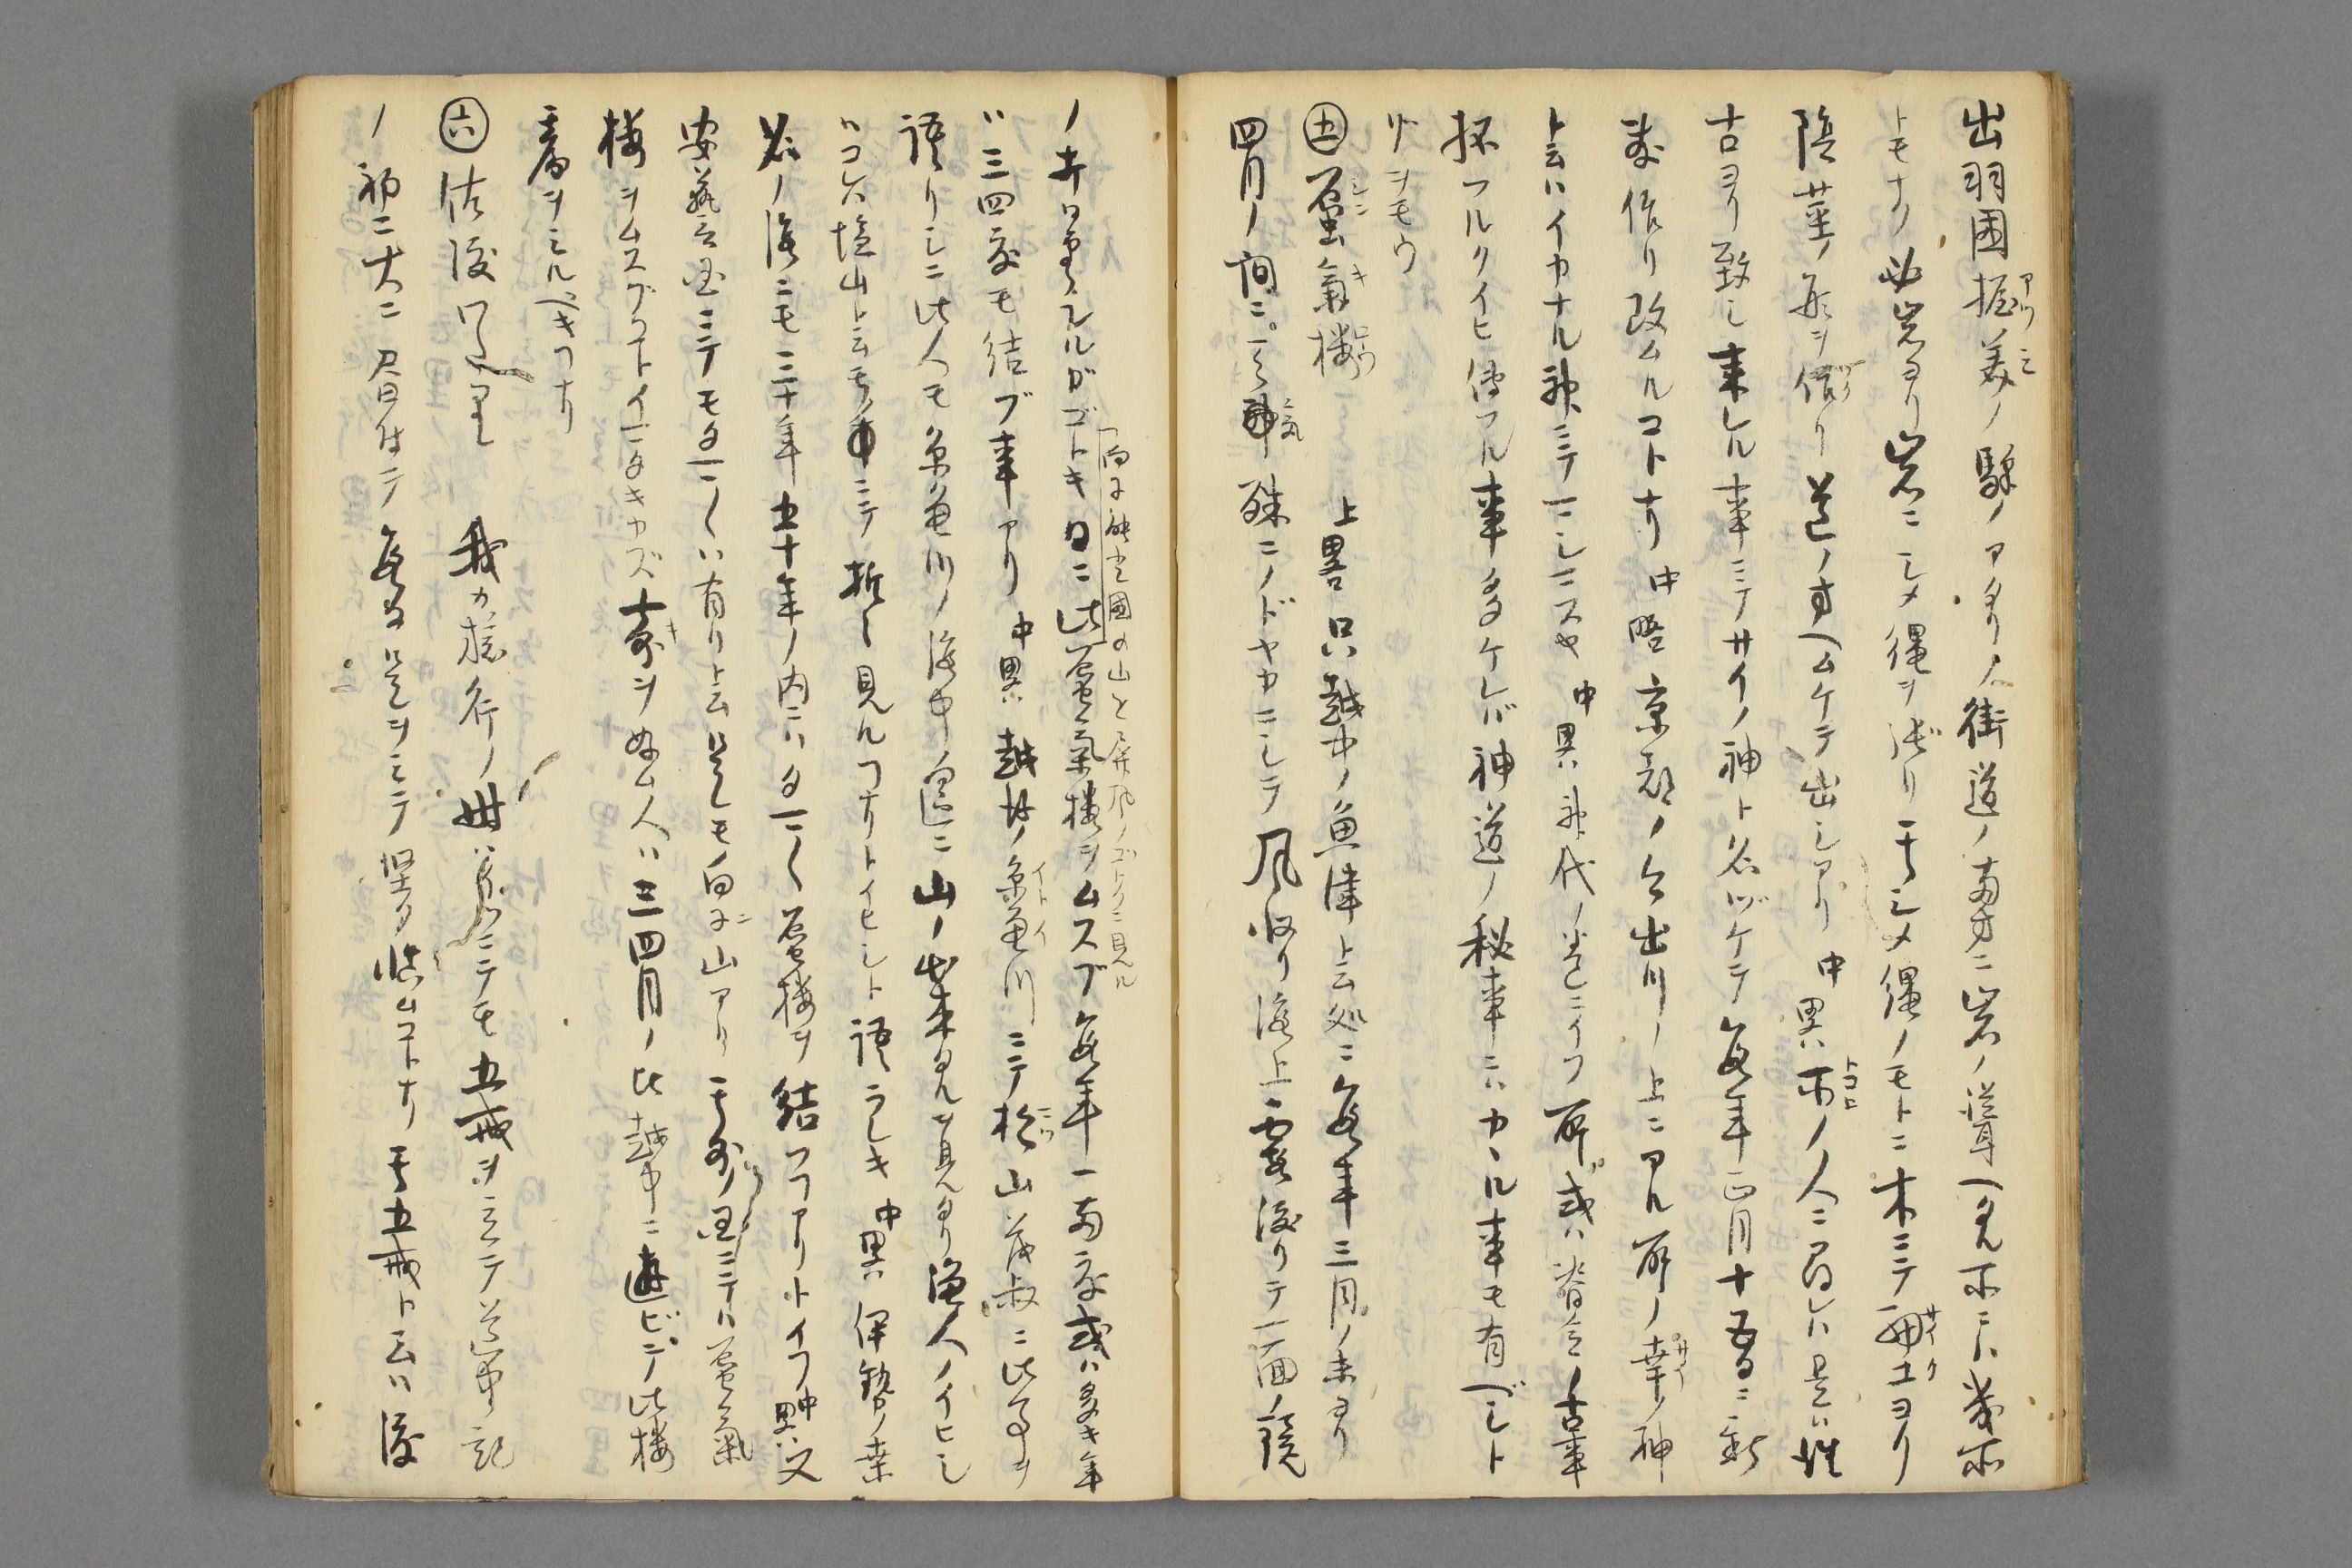 出羽国握美ノ駅ノアタリノ街道ノ両方ニ岩ノ聳ヘタル所ニハ幾所
トモナク必岩ヨリ岩ニシメ縄ヲ張リ其シメ縄ノモトニ木ニテ細工ヨク
陰茎ノ形ヲ作リ道ノ方ヘムケテ出シアリ 中畧 所ノ人ニ尋レハ是ハ往
古ヨリ致シ来レル事ニテサイノ神ト名ヅケテ毎年正月十五日ニ新
ニ作リ改ムルコトナリ 中畧 京都ノ今出川ノ上ニアル所ノ幸ノ神
ト云ハイカナル神ニテマシマスヤ 中畧 神代ノ巻ニイフ所或ハ ノ古事
抔フルクイヒ伝フル事多ケレバ神道ノ秘事ニハカヽル事モ有ベシト
リヲモウ
㊄蜃氣楼 上畧 只越中ノ魚津ト云処ニ毎年三月ノ末ヨリ
四月ノ間ニ 天気殊ニノドヤカニシテ風収リ海上 渡リテ一面ノ鏡
ノ ゴトキ日ニ此蜃氣楼ヲムスブ毎年一両度或ハ多キ年
向フ能登國の山と屏風ノゴトクニ見ル
ハ三四度モ結ブ事アリ 中畧 越中ノ糸魚川ニテ松山茂叔ニ此事ヲ
語リシニ此人モ糸魚川ノ海中ノ ニ山ノ出来タルヲ見タリ漁人ノイヒシ
ハコレハ塩山ト云モノ ニテ折々見ルコナリトイヒシト語ラレキ 中畧 伊勢ノ桑
名ノ海ニモ三十年五十年ノ内ニハタマ〱蜃楼ヲ結フコアリトイフ 中畧 又
安藝ノ国ニテモタマ〱ハ有リト云是モ向フニ山アリ其外ノ国ニテハ蜃氣
楼ヲムスブコトイマタキカズ奇ヲ好ム人ハ三四月ノ比越中ニ遊ビテ此楼
臺ヲミルベキコナリ
㊅佐渡 我カ旅行ノ ニテモ五戒ヲ立テ道中記
ノ初ニ大ニ書付テ毎日是ヲミテ堅ク慎ムコトナリ其五戒ト云ハ渡